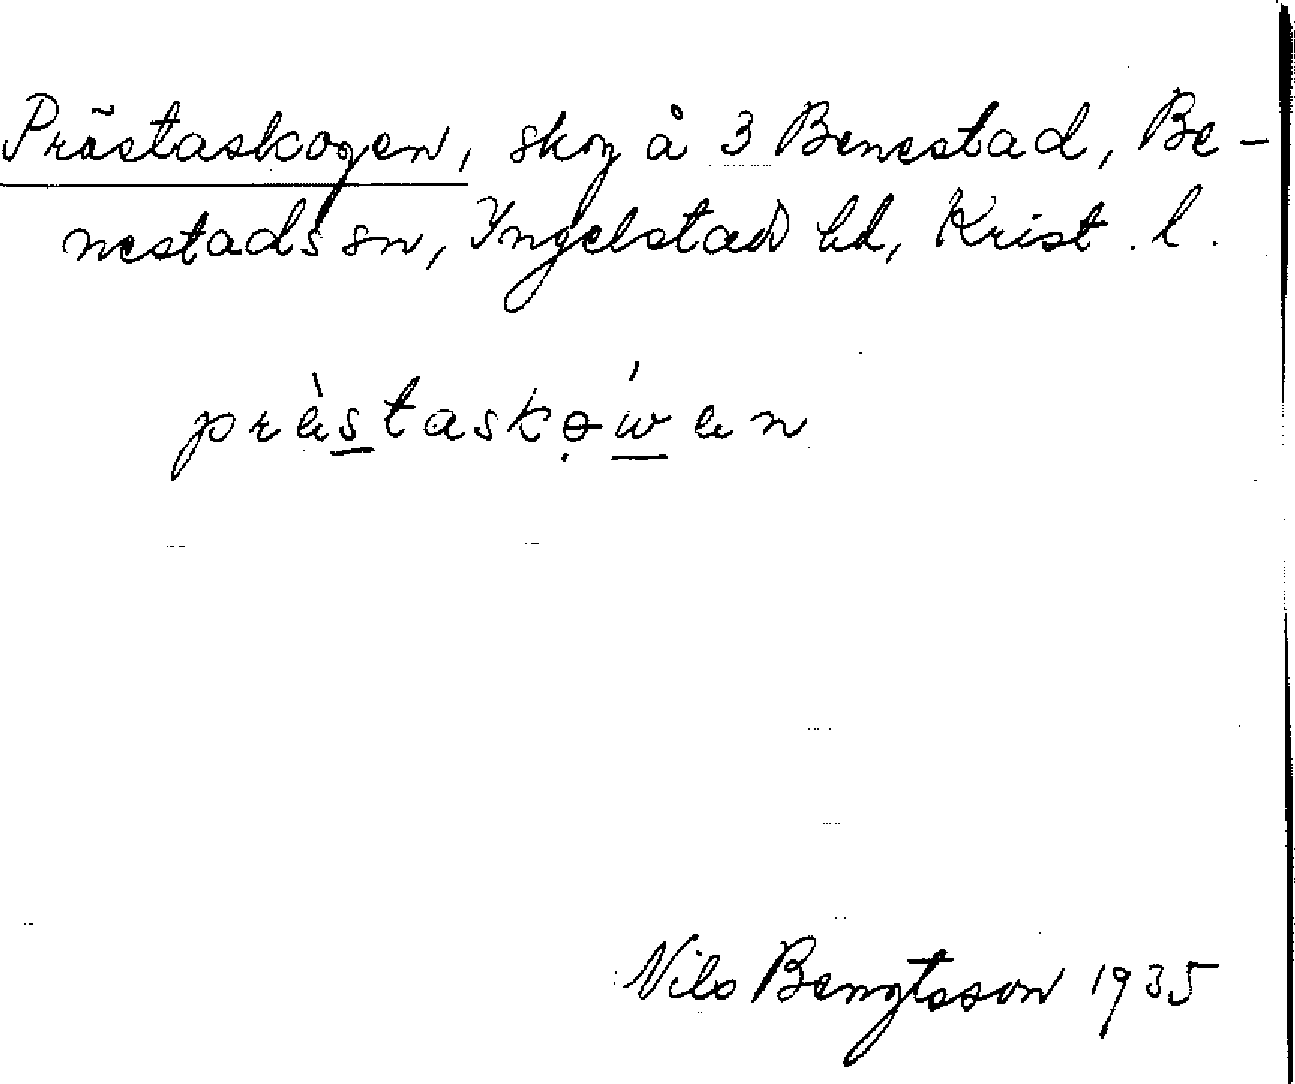 Prästaskogen, skog å 3 Benestad, Be-
nestads sn, Ingelstad hd, Krist. l.
prä̀s̲taskɵ̣ẃ̲än
Nils Bengtsson 1935